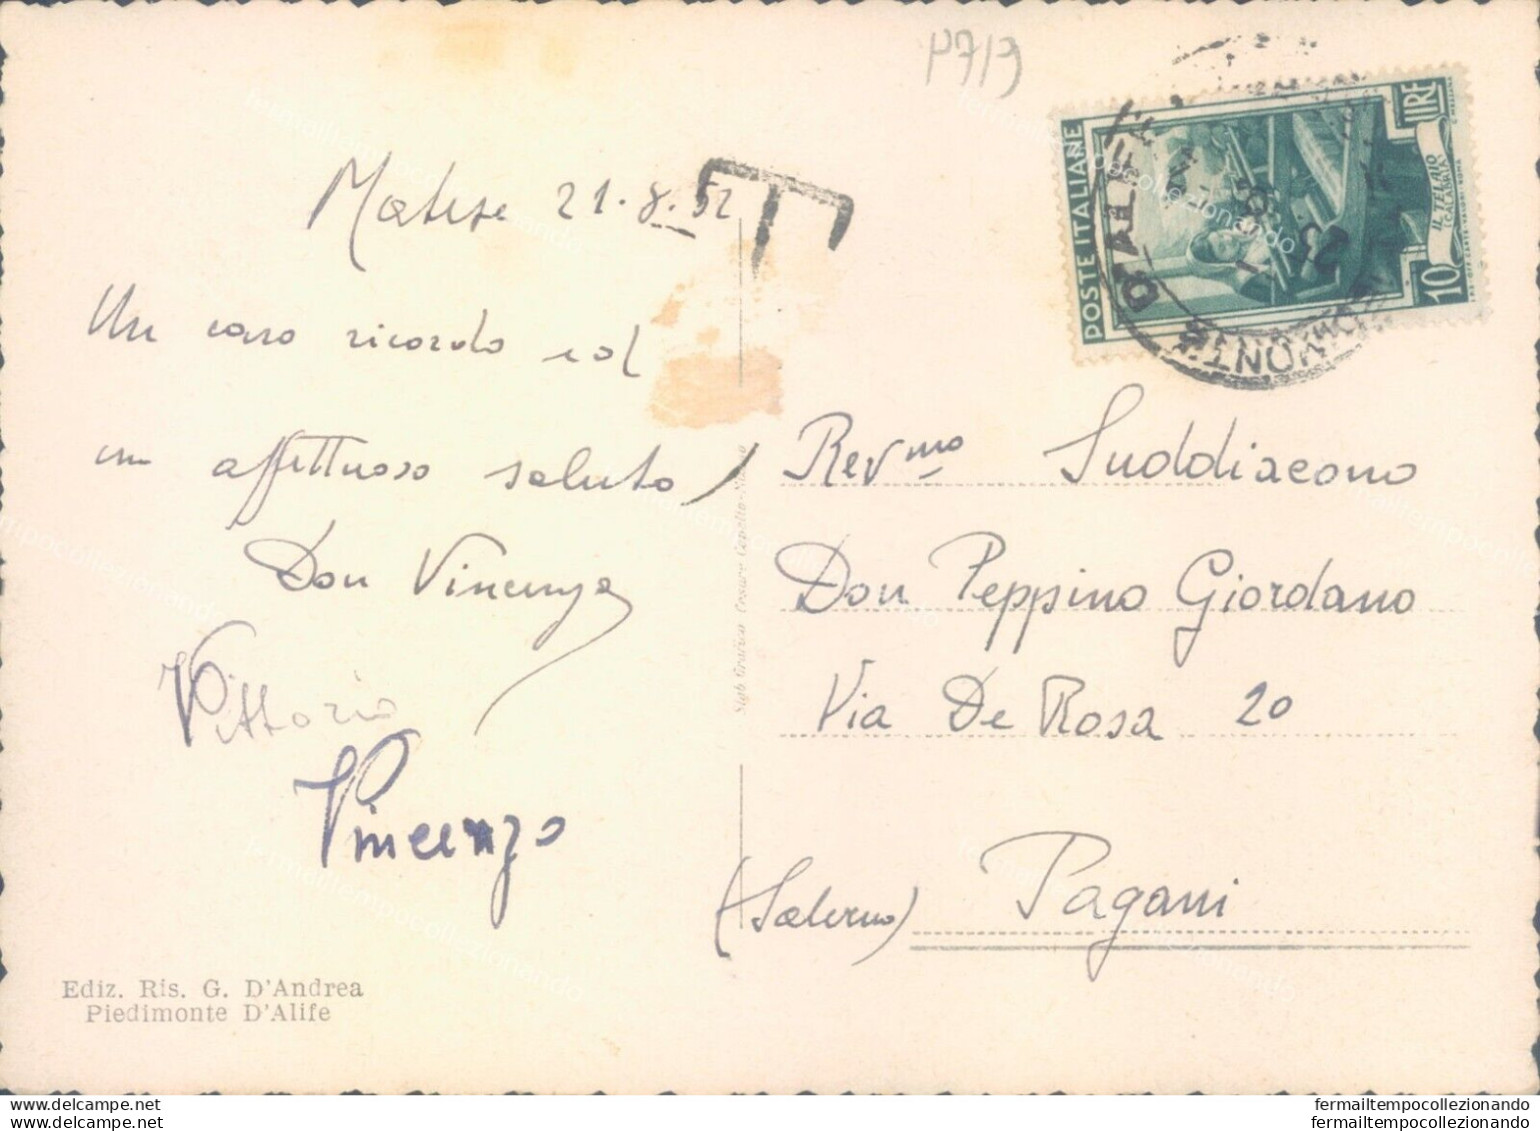 P719
Matese 21.8.52
T
Un caro ricordo ed
un affettuoso saluto
Don Vincenzo
Vittorio
Vincenzo
Ediz. Ris. G. D'Andrea
Piedimonte D'Alife
POSTE ITALIANE
LIRE
10
IL TELAIO
CALABRIA
D'ALIFE
Rev.mo Suddiacono
Don Peppino Giordano
Via De Rosa 20
Pagani
(Salerno)
fermailtempocollezionando
fermailtempocollezionando
fermailtempocollezionando
fermailtempocollezionando